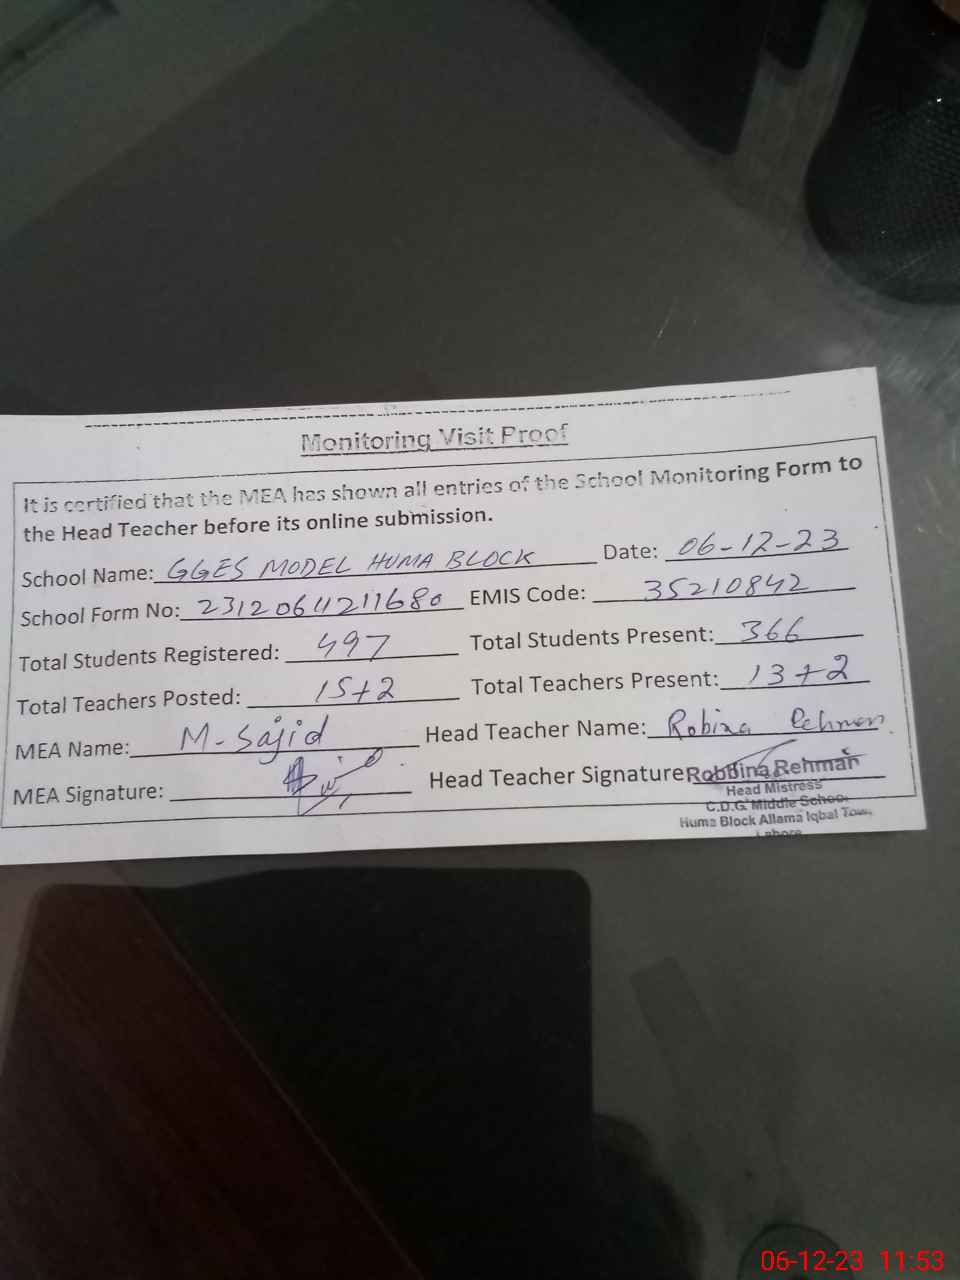 Monitoring Visit Proof
It is certified that the MEA has shown all entries of the School Monitoring Form to
the Head Teacher before its online submission.
School Name: GGES MODEL HUMA BLOCK Date: 06-12-23
School Form No: 2312064211680 EMIS Code: 35210842
Total Students Registered: 497 Total Students Present: 366
Total Teachers Posted: 15+2 Total Teachers Present: 13+2
MEA Name: M-Sajid Head Teacher Name: Robina Rehman
MEA Signature: Head Teacher Signature Robbina Rehman
Head Mistress
C.D.G. Middle School
Huma Block Allama Iqbal Town,
Lahore
06-12-23 11:53